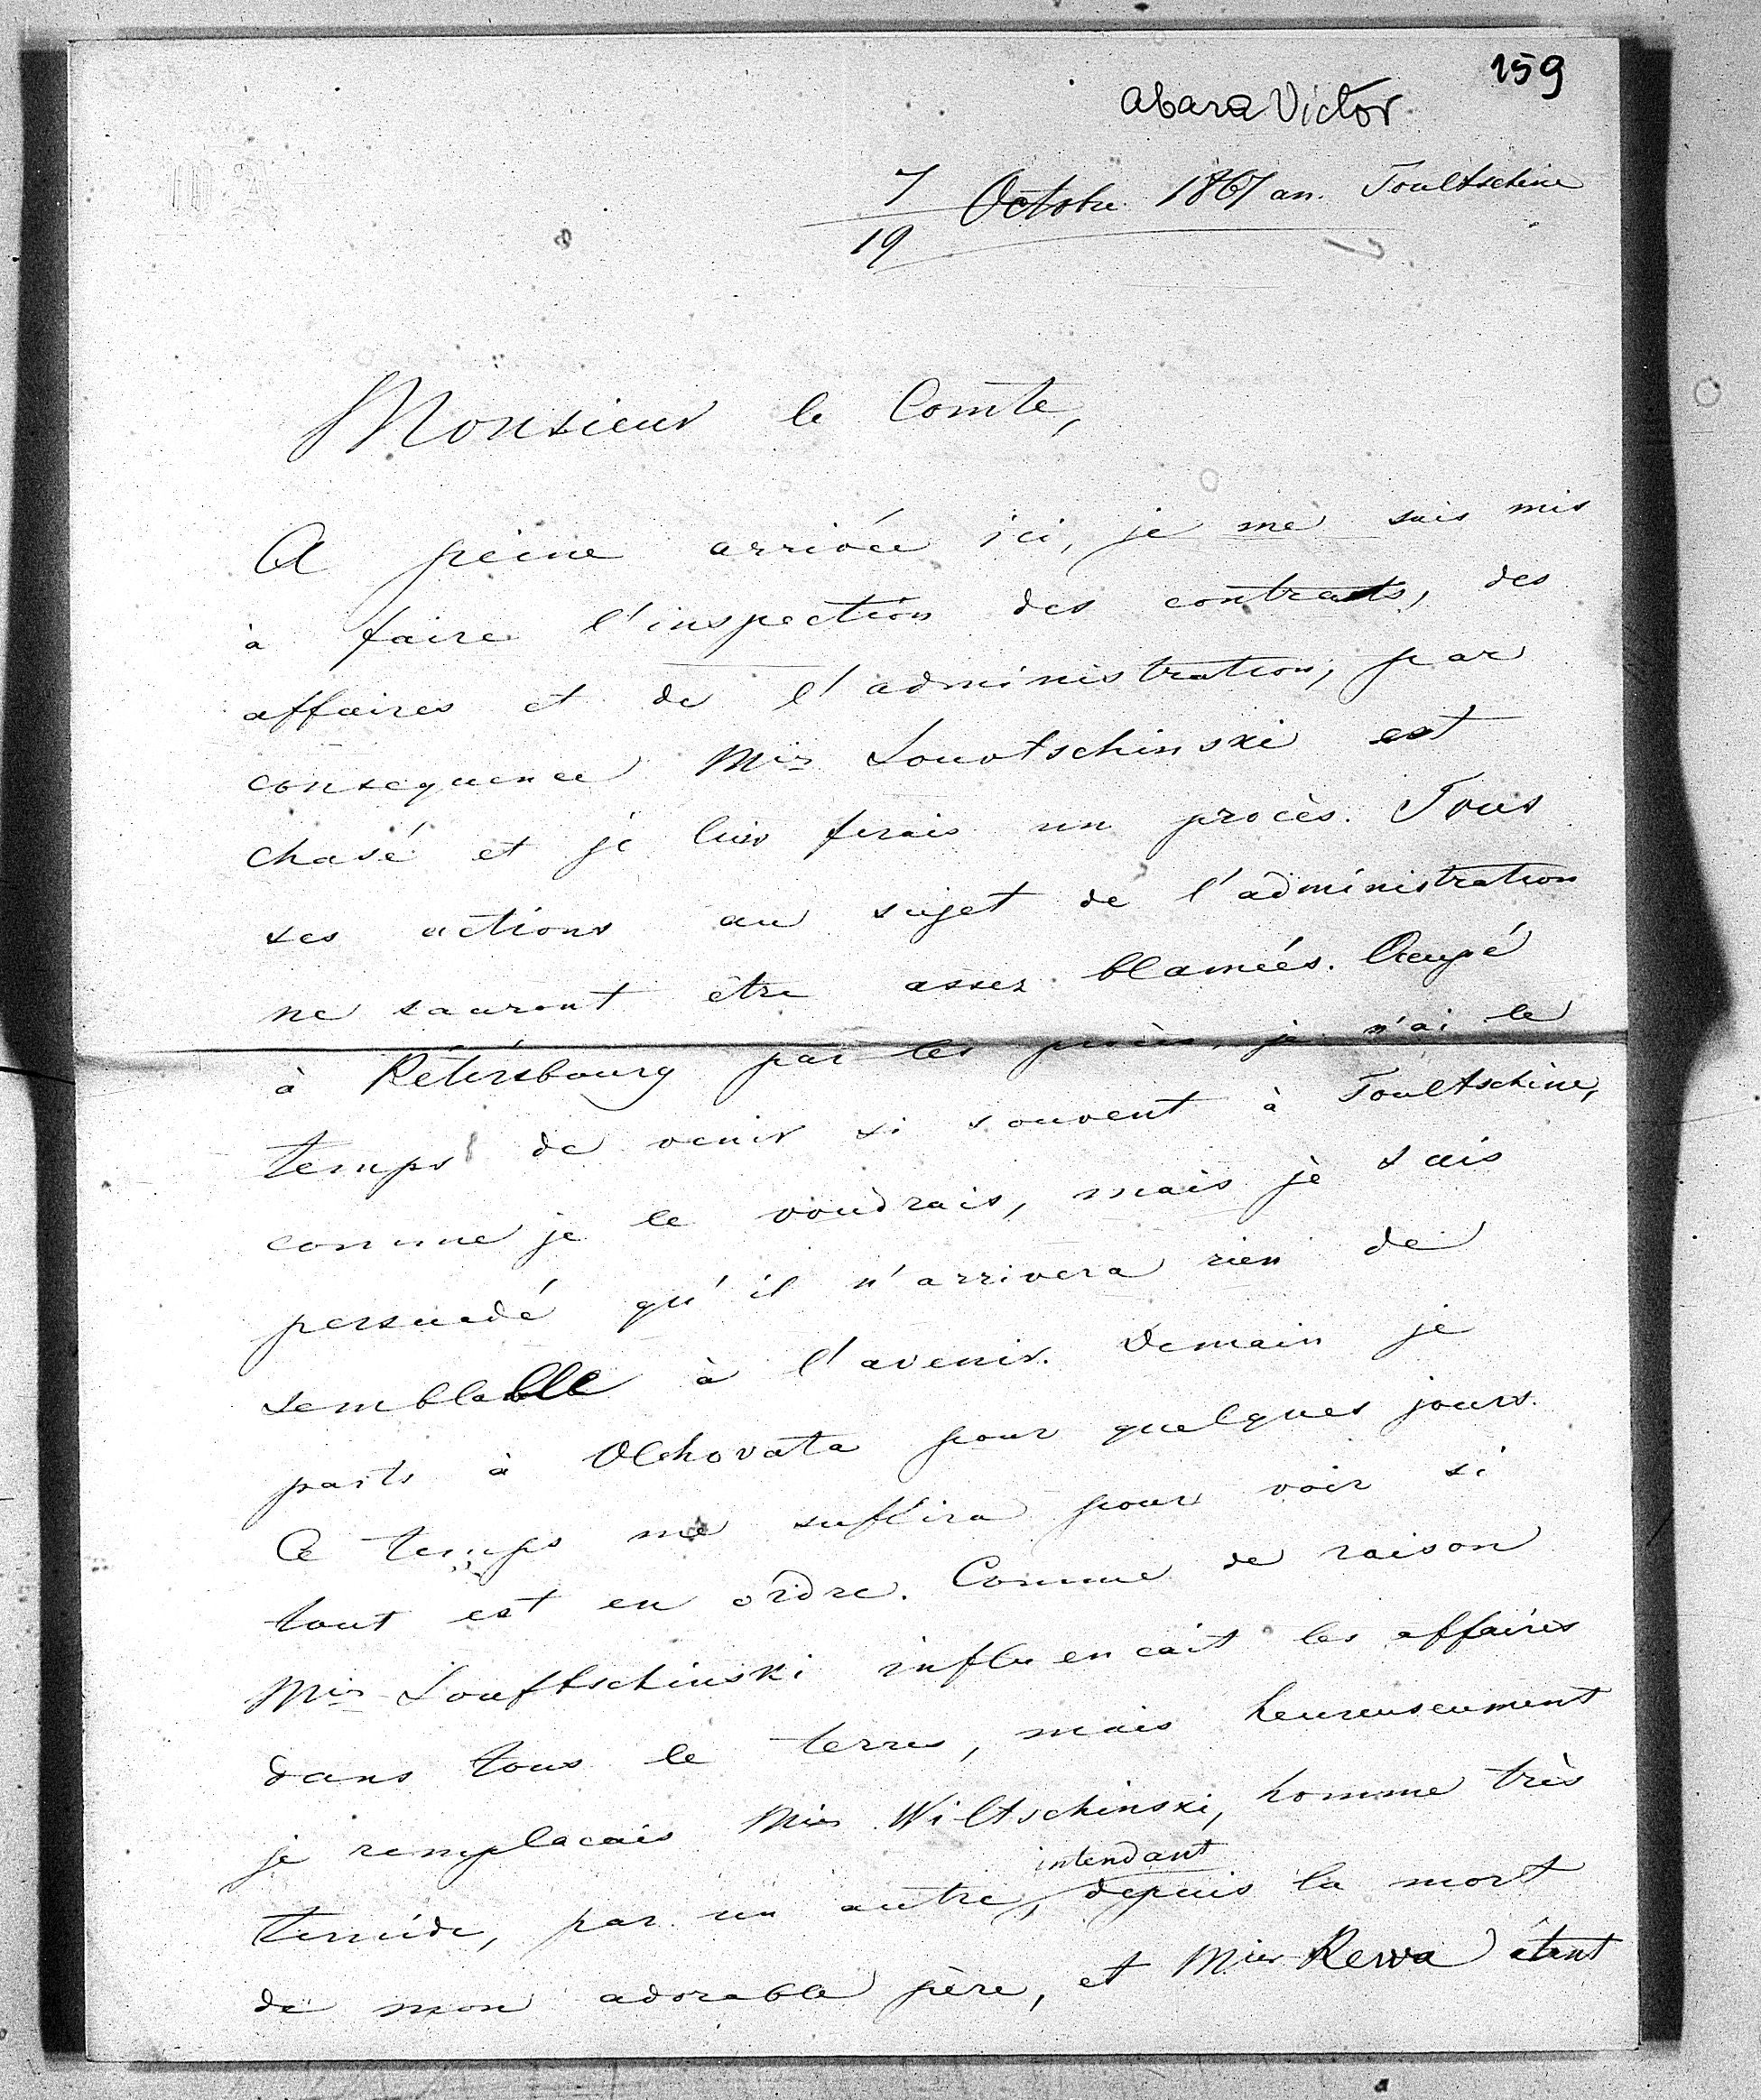 159
abaza Victor
7 Octobre 1867 an. Toultschine
19
Monsieur le Comte,
A peine arrivée ici, je me suis mis
à faire l'inspection des contracts, des
affaires et de l'administration, par
consequence Mr Louvtschinski est
chasé et je lui ferais un procès. Tous
ses actions au sujet de l'administration
ne sauront être assez blamées. Occupé
à Pétersbourg par les procès, je n'ai le
temps de venir si souvent à Toultschine,
comme je le voudrais, mais je suis
persuadé qu'il n'arrivera rien de
semblable à l'avenir. Demain je
parts à Olchovata pour quelques jours.
Ce temps me suffira pour voir si
tout est en ordre. Comme de raison
Mr Louftschinski influencait les affaires
dans tous le terres, mais heureusement
je remplacais Mr Wiltschinski, homme très
intendant
timide, par un autre, depuis la mort
de mon adorable père, et Mr Rewa étant